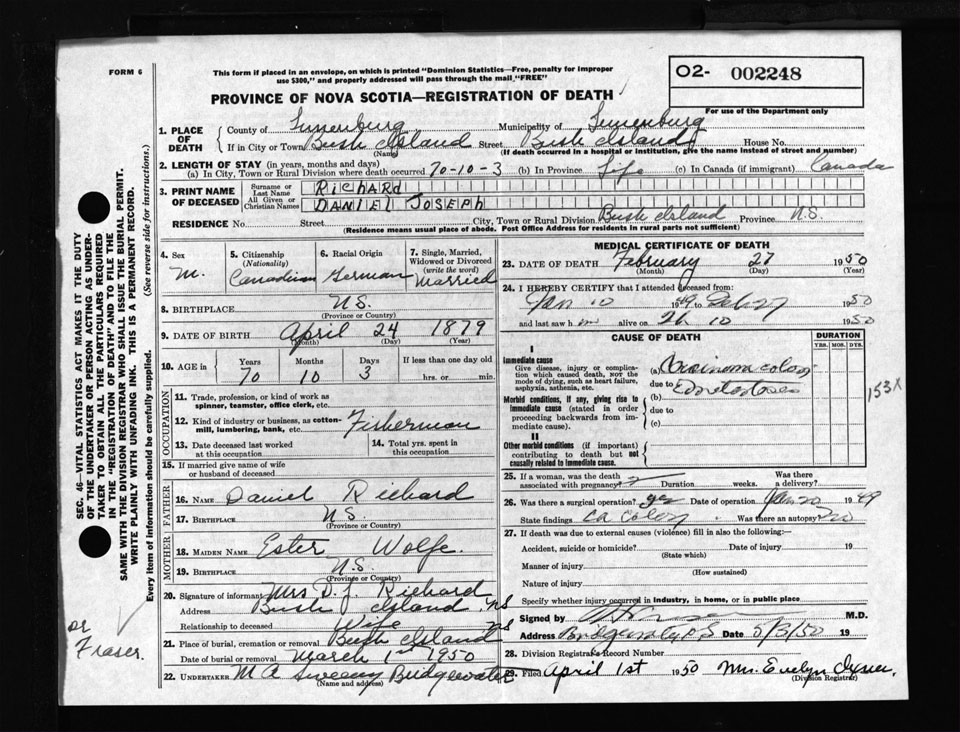 FORM 6
This form if placed in an envelope, on which is printed "Dominion Statistics—Free, penalty for improper
use $300," and properly addressed will pass through the mail "FREE"
O2- 002248
For use of the Department only
PROVINCE OF NOVA SCOTIA—REGISTRATION OF DEATH
1. PLACE OF DEATH { County of Lunenburg Municipality of Lunenburg
If in City or Town Bush Island Street Bush Island House No.
(Name) (If death occurred in a hospital or institution, give the name instead of street and number)
2. LENGTH OF STAY (in years, months and days)
(a) In City, Town or Rural Division where death occurred 70-10-3 (b) In Province Life (c) In Canada (if immigrant) Canada
3. PRINT NAME OF DECEASED { Surname or Last Name RichARd
All Given or Christian Names DANIEL JOSEPH
RESIDENCE No. Street City, Town or Rural Division Bush Island Province N.S.
(Residence means usual place of abode. Post Office Address for residents in rural parts not sufficient)
4. Sex M.
5. Citizenship (Nationality) Canadian
6. Racial Origin German
7. Single, Married, Widowed or Divorced (write the word) Married
8. BIRTHPLACE N.S.
(Province or Country)
9. DATE OF BIRTH April 24 1879
(Month) (Day) (Year)
10. AGE in { Years 70 Months 10 Days 3 If less than one day old
hrs. or min.
OCCUPATION
11. Trade, profession, or kind of work as
spinner, teamster, office clerk, etc.
12. Kind of industry or business, as cotton-
mill, lumbering, bank, etc. Fisherman
13. Date deceased last worked
at this occupation
14. Total yrs. spent in
this occupation
15. If married give name of wife
or husband of deceased
FATHER
16. NAME Daniel Richard
17. BIRTHPLACE N.S.
(Province or Country)
MOTHER
18. MAIDEN NAME Ester Wolfe.
19. BIRTHPLACE N.S.
(Province or Country)
20. Signature of informant Mrs D. J. Richard
Address Bush Island, NS
Relationship to deceased Wife
21. Place of burial, cremation or removal Bush Island NS
Date of burial or removal March 1st 1950
22. UNDERTAKER M A Sweeny Bridgewater
(Name and address)
MEDICAL CERTIFICATE OF DEATH
23. DATE OF DEATH February 27 1950
(Month) (Day) (Year)
24. I HEREBY CERTIFY that I attended deceased from
Jan 10 1949 to 1950
and last saw him alive on 10 1950
CAUSE OF DEATH
DURATION
YRS. MOS. DYS.
I
Immediate cause
Give disease, injury or complica-
tion which caused death, NOT the
mode of dying, such as heart failure,
asphyxia, asthenia, etc.
(a) Carcinoma colon
due to
Morbid conditions, if any, giving rise to
immediate cause (stated in order
proceeding backwards from im-
mediate cause).
(b)
due to
(c)
153X
II
Other morbid conditions (if important)
contributing to death but not
causally related to immediate cause.
25. If a woman, was the death
associated with pregnancy? Duration weeks. Was there a delivery?
26. Was there a surgical operation? yes Date of operation Jan 20 1949
State findings ca colon. Was there an autopsy? no
27. If death was due to external causes (violence) fill in also the following:
Accident, suicide or homicide? Date of injury 19
(State which)
Manner of injury
(How sustained)
Nature of injury
Specify whether injury occurred in industry, in home, or in public place
Signed by M.D.
Address Bridgewater N S Date 5/3/50 19
28. Division Registrar's Record Number
29. Filed April 1st 1950 Mrs. Evelyn
(Division Registrar)
SEC. 46—VITAL STATISTICS ACT MAKES IT THE DUTY
OF THE UNDERTAKER OR PERSON ACTING AS UNDER-
TAKER TO OBTAIN ALL THE PARTICULARS REQUIRED
IN THE "REGISTRATION OF DEATH" AND TO FILE THE
SAME WITH THE DIVISION REGISTRAR WHO SHALL ISSUE THE BURIAL PERMIT.
WRITE PLAINLY WITH UNFADING INK. THIS IS A PERMANENT RECORD.
Every item of information should be carefully supplied. (See reverse side for instructions.)
or
Fraser.